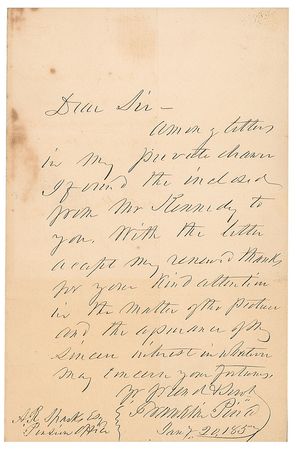 Dear Sir –
among letters
in my private drawer
I found the inclosed
from Mr Kennedy to
you. With the letter
accept my renewed thanks
for your kind attention
in the matter of the Picture
and the assurance of my
sincere interest in whatever
may concern your fortunes.
Yr friend & Servt
Franklin Pierce
A. R. Sparks Esq
Pension Office
Jany 20, 1857